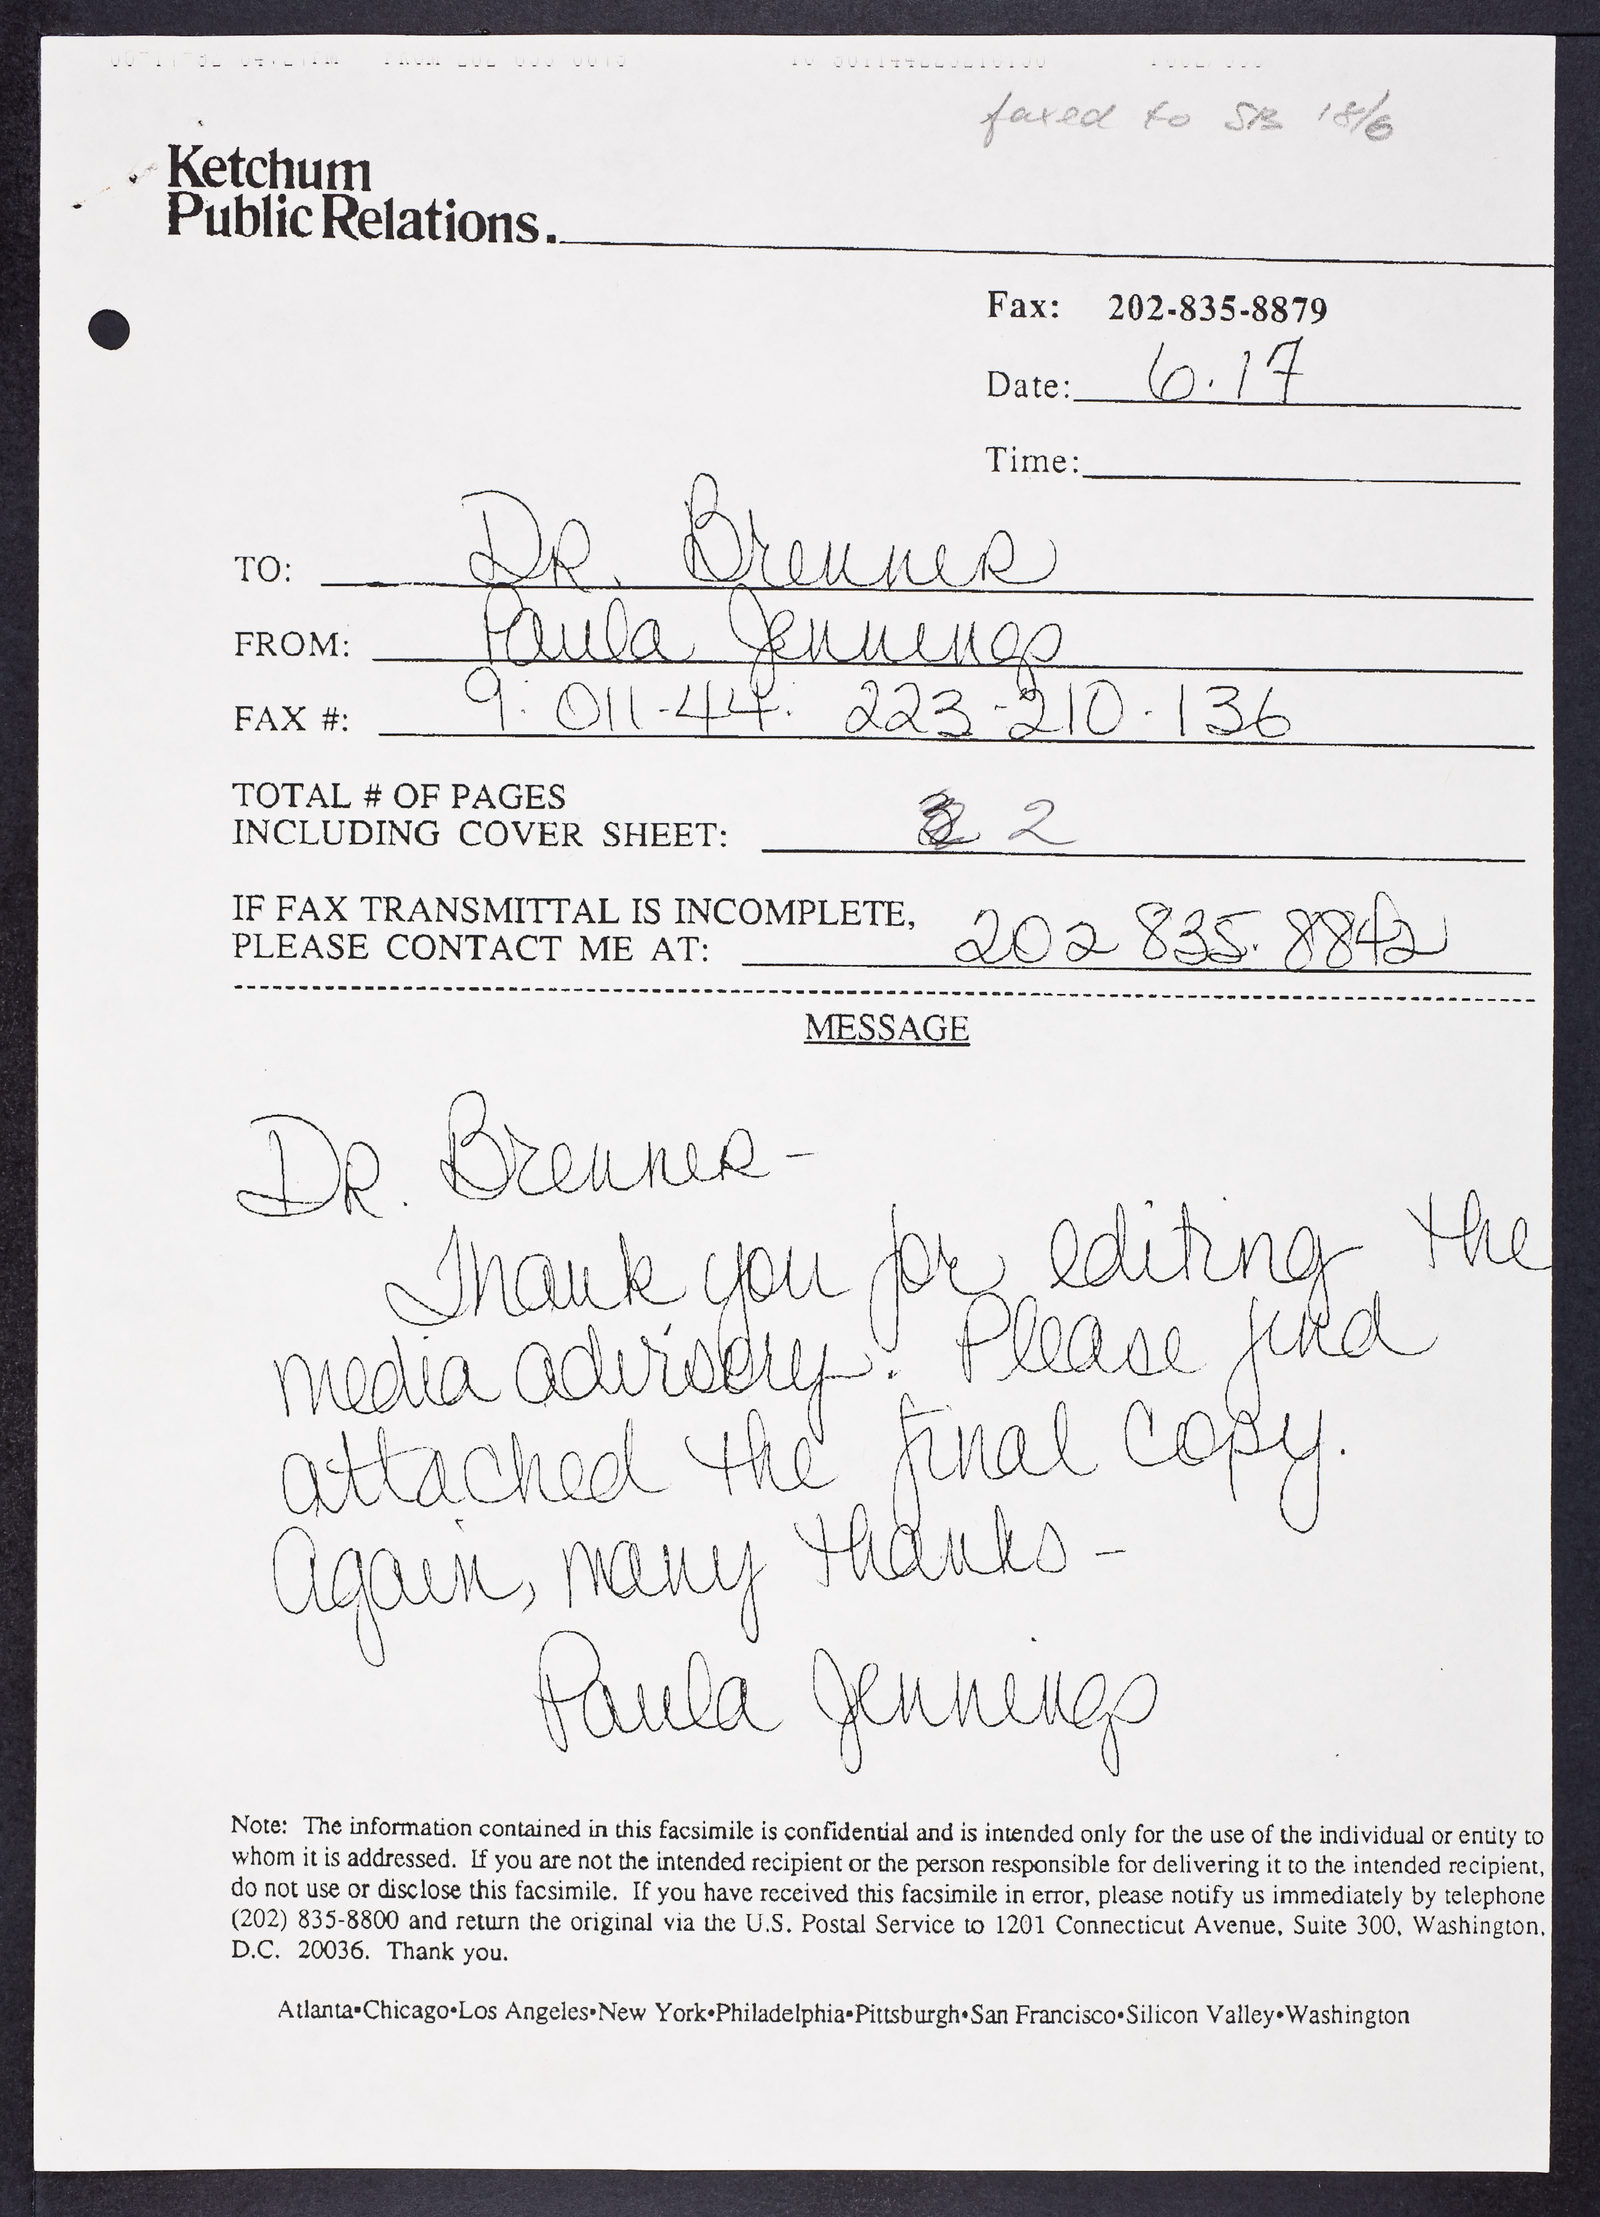 faxed to SB 18/6
Ketchum
Public Relations.
Fax: 202-835-8879
Date: 6.17
Time:
TO: DR. Brenner
FROM: Paula Jennings
FAX #: 9. 011-44. 223-210-136
TOTAL # OF PAGES
INCLUDING COVER SHEET: 2
IF FAX TRANSMITTAL IS INCOMPLETE,
PLEASE CONTACT ME AT: 202 835.8842
MESSAGE
DR. Brenner -
Thank you for editing the
media advisory. Please find
attached the final copy.
Again, many thanks -
Paula Jennings
Note: The information contained in this facsimile is confidential and is intended only for the use of the individual or entity to
whom it is addressed. If you are not the intended recipient or the person responsible for delivering it to the intended recipient,
do not use or disclose this facsimile. If you have received this facsimile in error, please notify us immediately by telephone
(202) 835-8800 and return the original via the U.S. Postal Service to 1201 Connecticut Avenue, Suite 300, Washington,
D.C. 20036. Thank you.
Atlanta•Chicago•Los Angeles•New York•Philadelphia•Pittsburgh•San Francisco•Silicon Valley•Washington